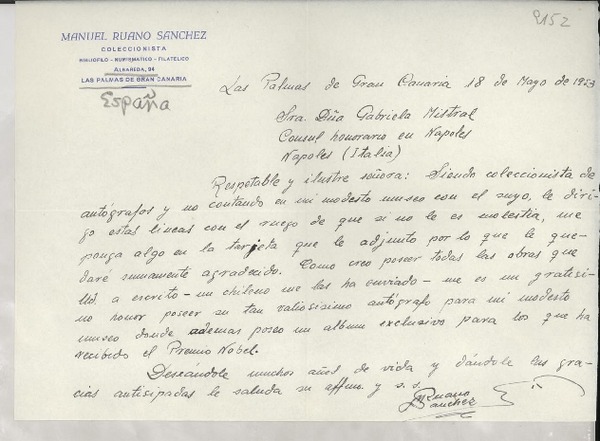 9152
MANUEL RUANO SANCHEZ
COLECCIONISTA
BIBLIOFILO - NUMISMATICO - FILATELICO
ALBAREDA, 94
LAS PALMAS DE GRAN CANARIA
España
Las Palmas de Gran Canaria 18 de Mayo de 1953
Sra. Dña Gabriela Mistral
Consul honorario en Napoles
Napoles (Italia)
Respetable y ilustre señora: Siendo coleccionista de
autógrafos y no contando en mi modesto museo con el suyo, le diri-
go estas lineas con el ruego de que si no le es molestia, me
ponga algo en la tarjeta que le adjunto por lo que le que-
daré sumamente agradecido. Como creo poseer todas las obras que
a escrito - un chileno me las ha enviado - me es un gratisi-
mo honor poseer su tan valiosisimo autógrafo para mi modesto
museo donde ademas poseo un album exclusivo para los que ha
recibido el Premio Nobel.
Deseandole muchos años de vida y dándole las gra-
cias antisipadas le saluda su affmo. y s. s.
M Ruano
Sanchez